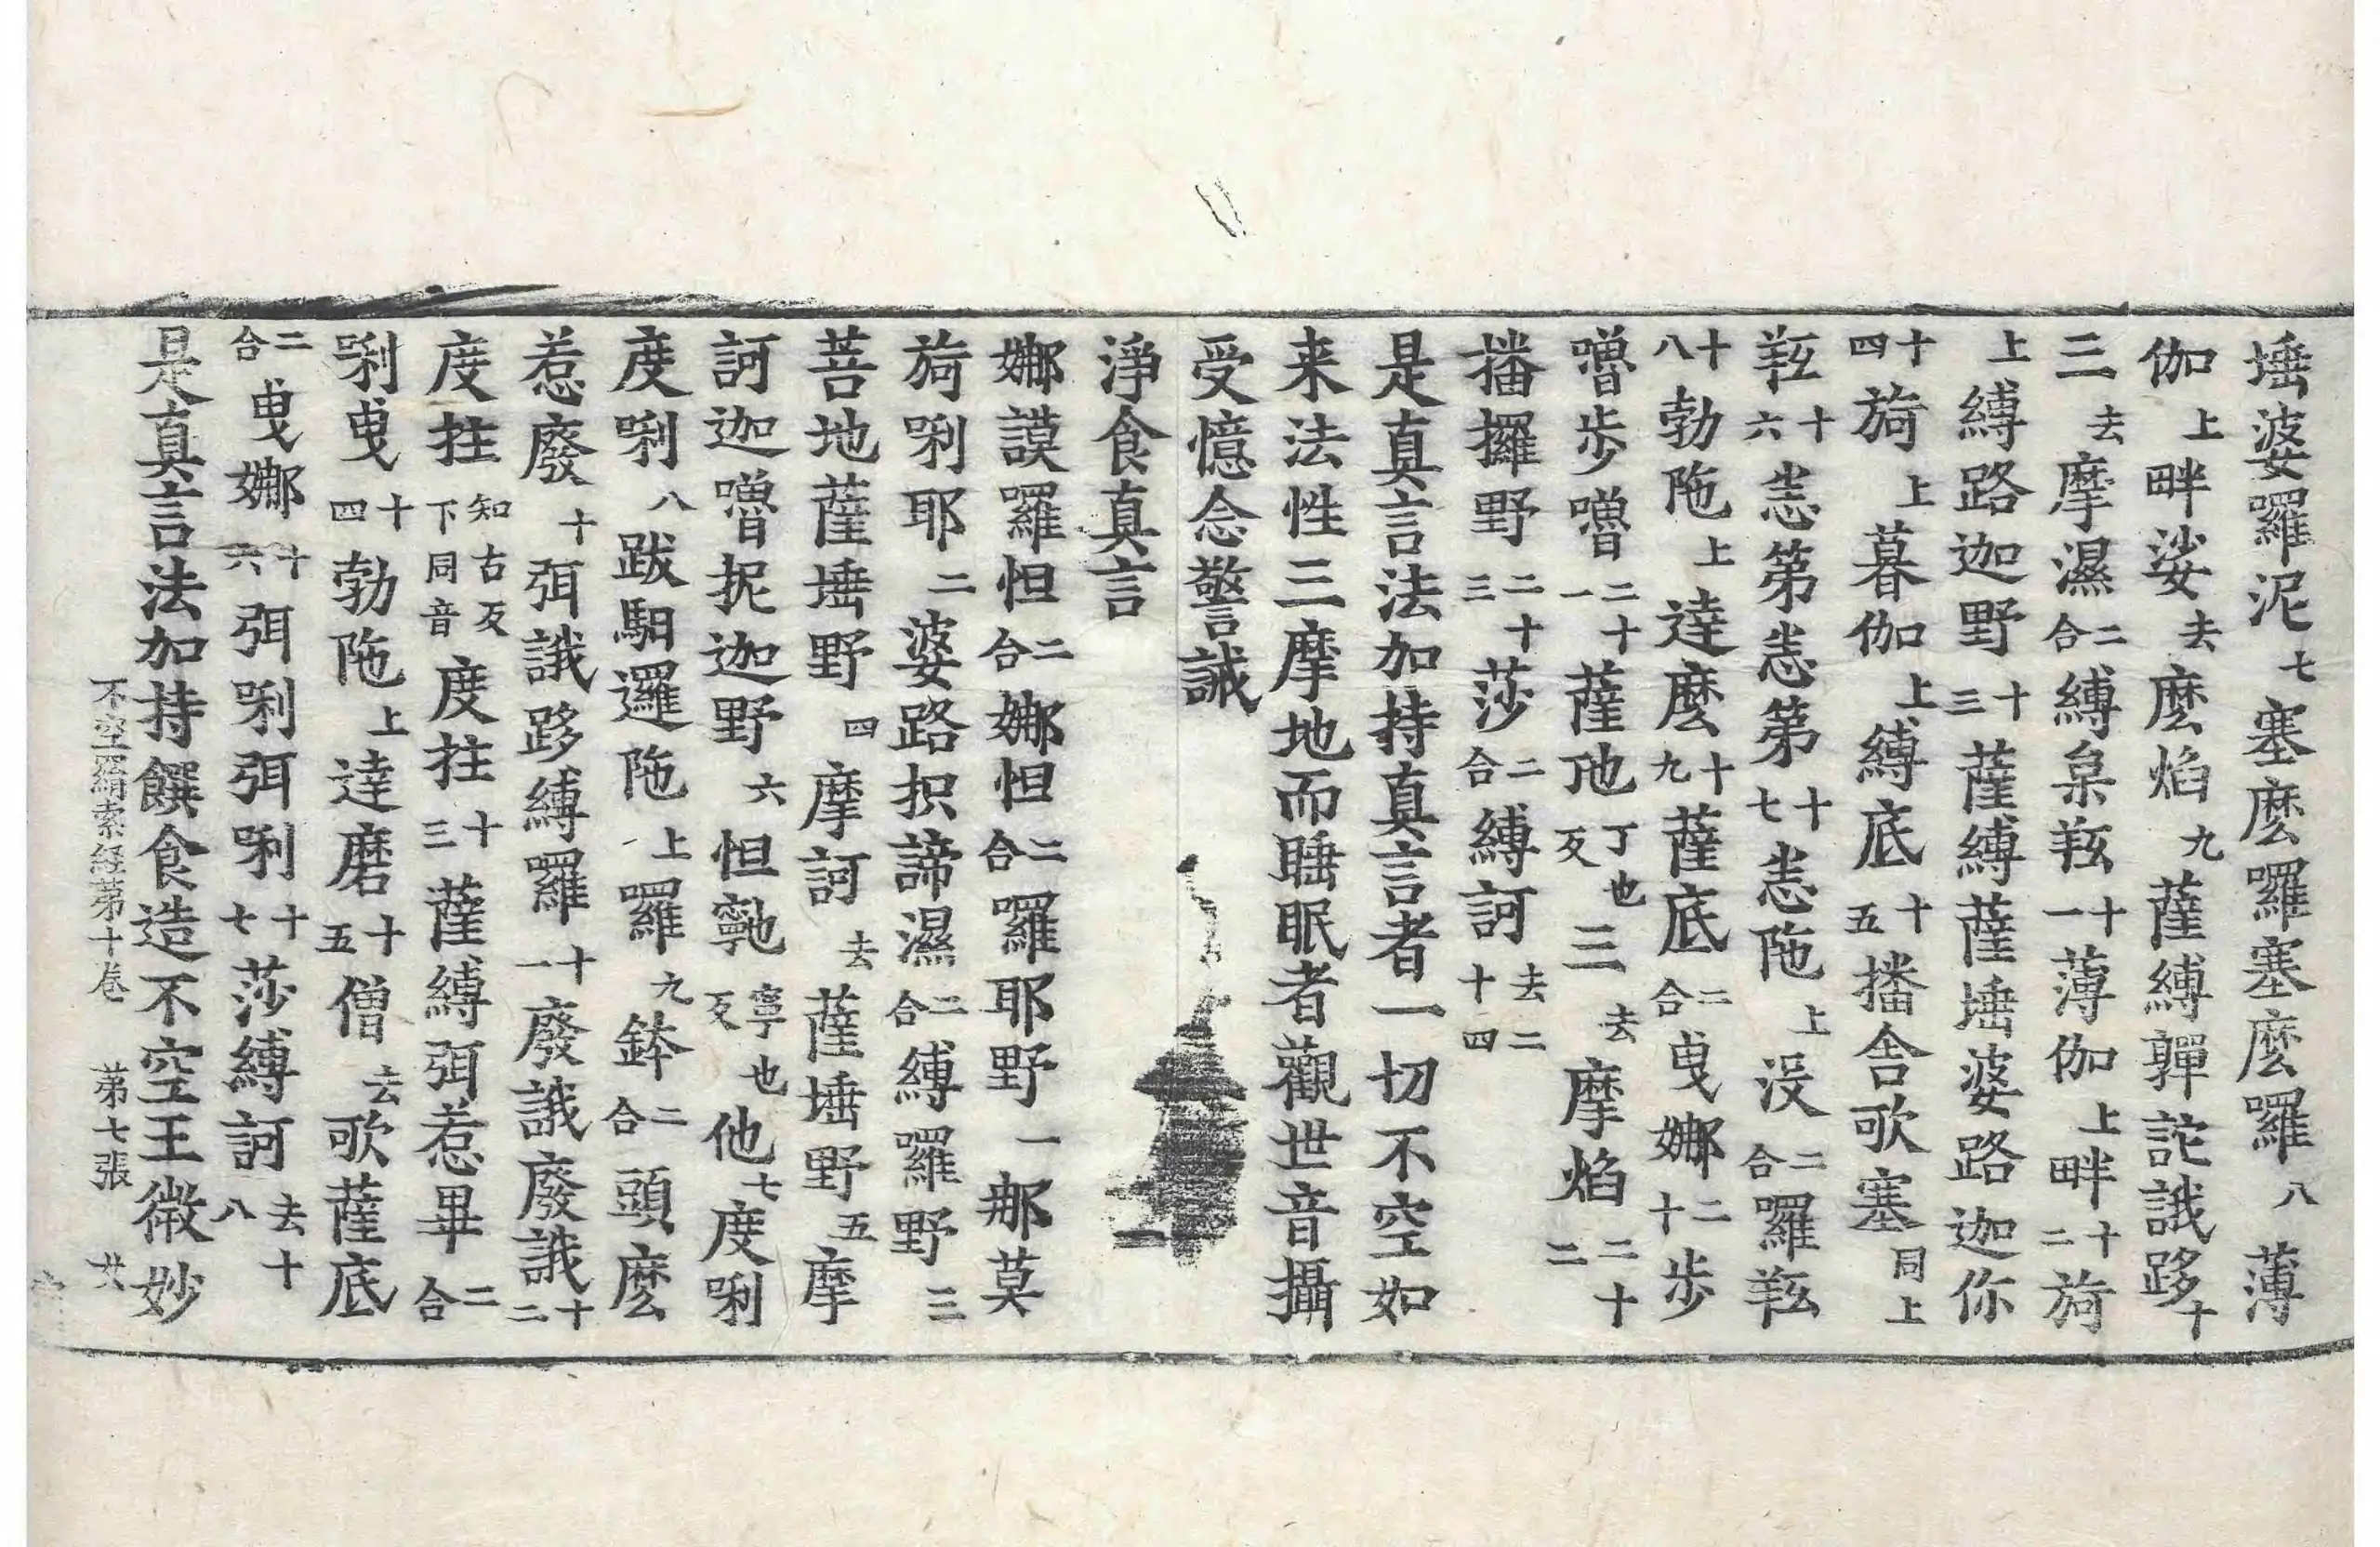 埵婆囉泥七塞麽囉塞麽囉八薄
伽上畔娑去麽焰九薩縛鄿詑誐跢十
三去摩濕二合縛枲𦍕十一薄伽上畔十二旖
上縛路迦野十三薩縛薩埵婆路迦你
十四旖上暮伽上縛底十五播舍歌塞同上
𦍕十六恚第恚第十七恚陁上沒二合囉𦍕
十八勃陁上達麽十九薩底二合曳娜二十步
嚕步嚕二十一薩𠆙丁也反三去摩焰二十二
播攞野二十三莎二合縛訶去二十四
是真言法加持真言者一切不空如
来法性三摩地而睡眠者觀世音攝
受憶念警誡
淨食真言
娜謨羅怛二合娜怛二合囉耶野一那莫
旖唎耶二婆路抧諦濕二合縛囉野三
菩地薩埵野四摩訶去薩埵野五摩
訶迦嚕抳迦野六怛寧也寧也反他七度唎
度唎八跋馹邏陁上囉九鉢二合頭麽
惹廢十弭誐跢縛囉十一廢誐廢誐十二
度拄知古反下同音度拄十三薩縛弭惹畢二合
唎曳十四勃陁上達磨十五僧去歌薩底
二合曳娜十六弭唎弭唎十七莎縛訶去十八
是真言法加持饌食造不空王微妙
不空羂索経苐十卷　苐七張　廿